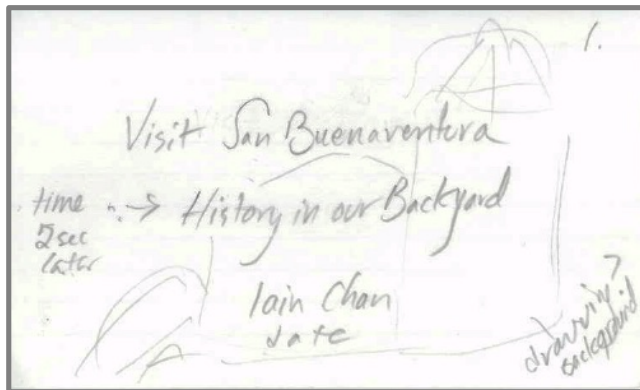 1.
Visit San Buenaventura
time
2sec
later
→ History in our Backyard
Iain Chan
date
drawing
background